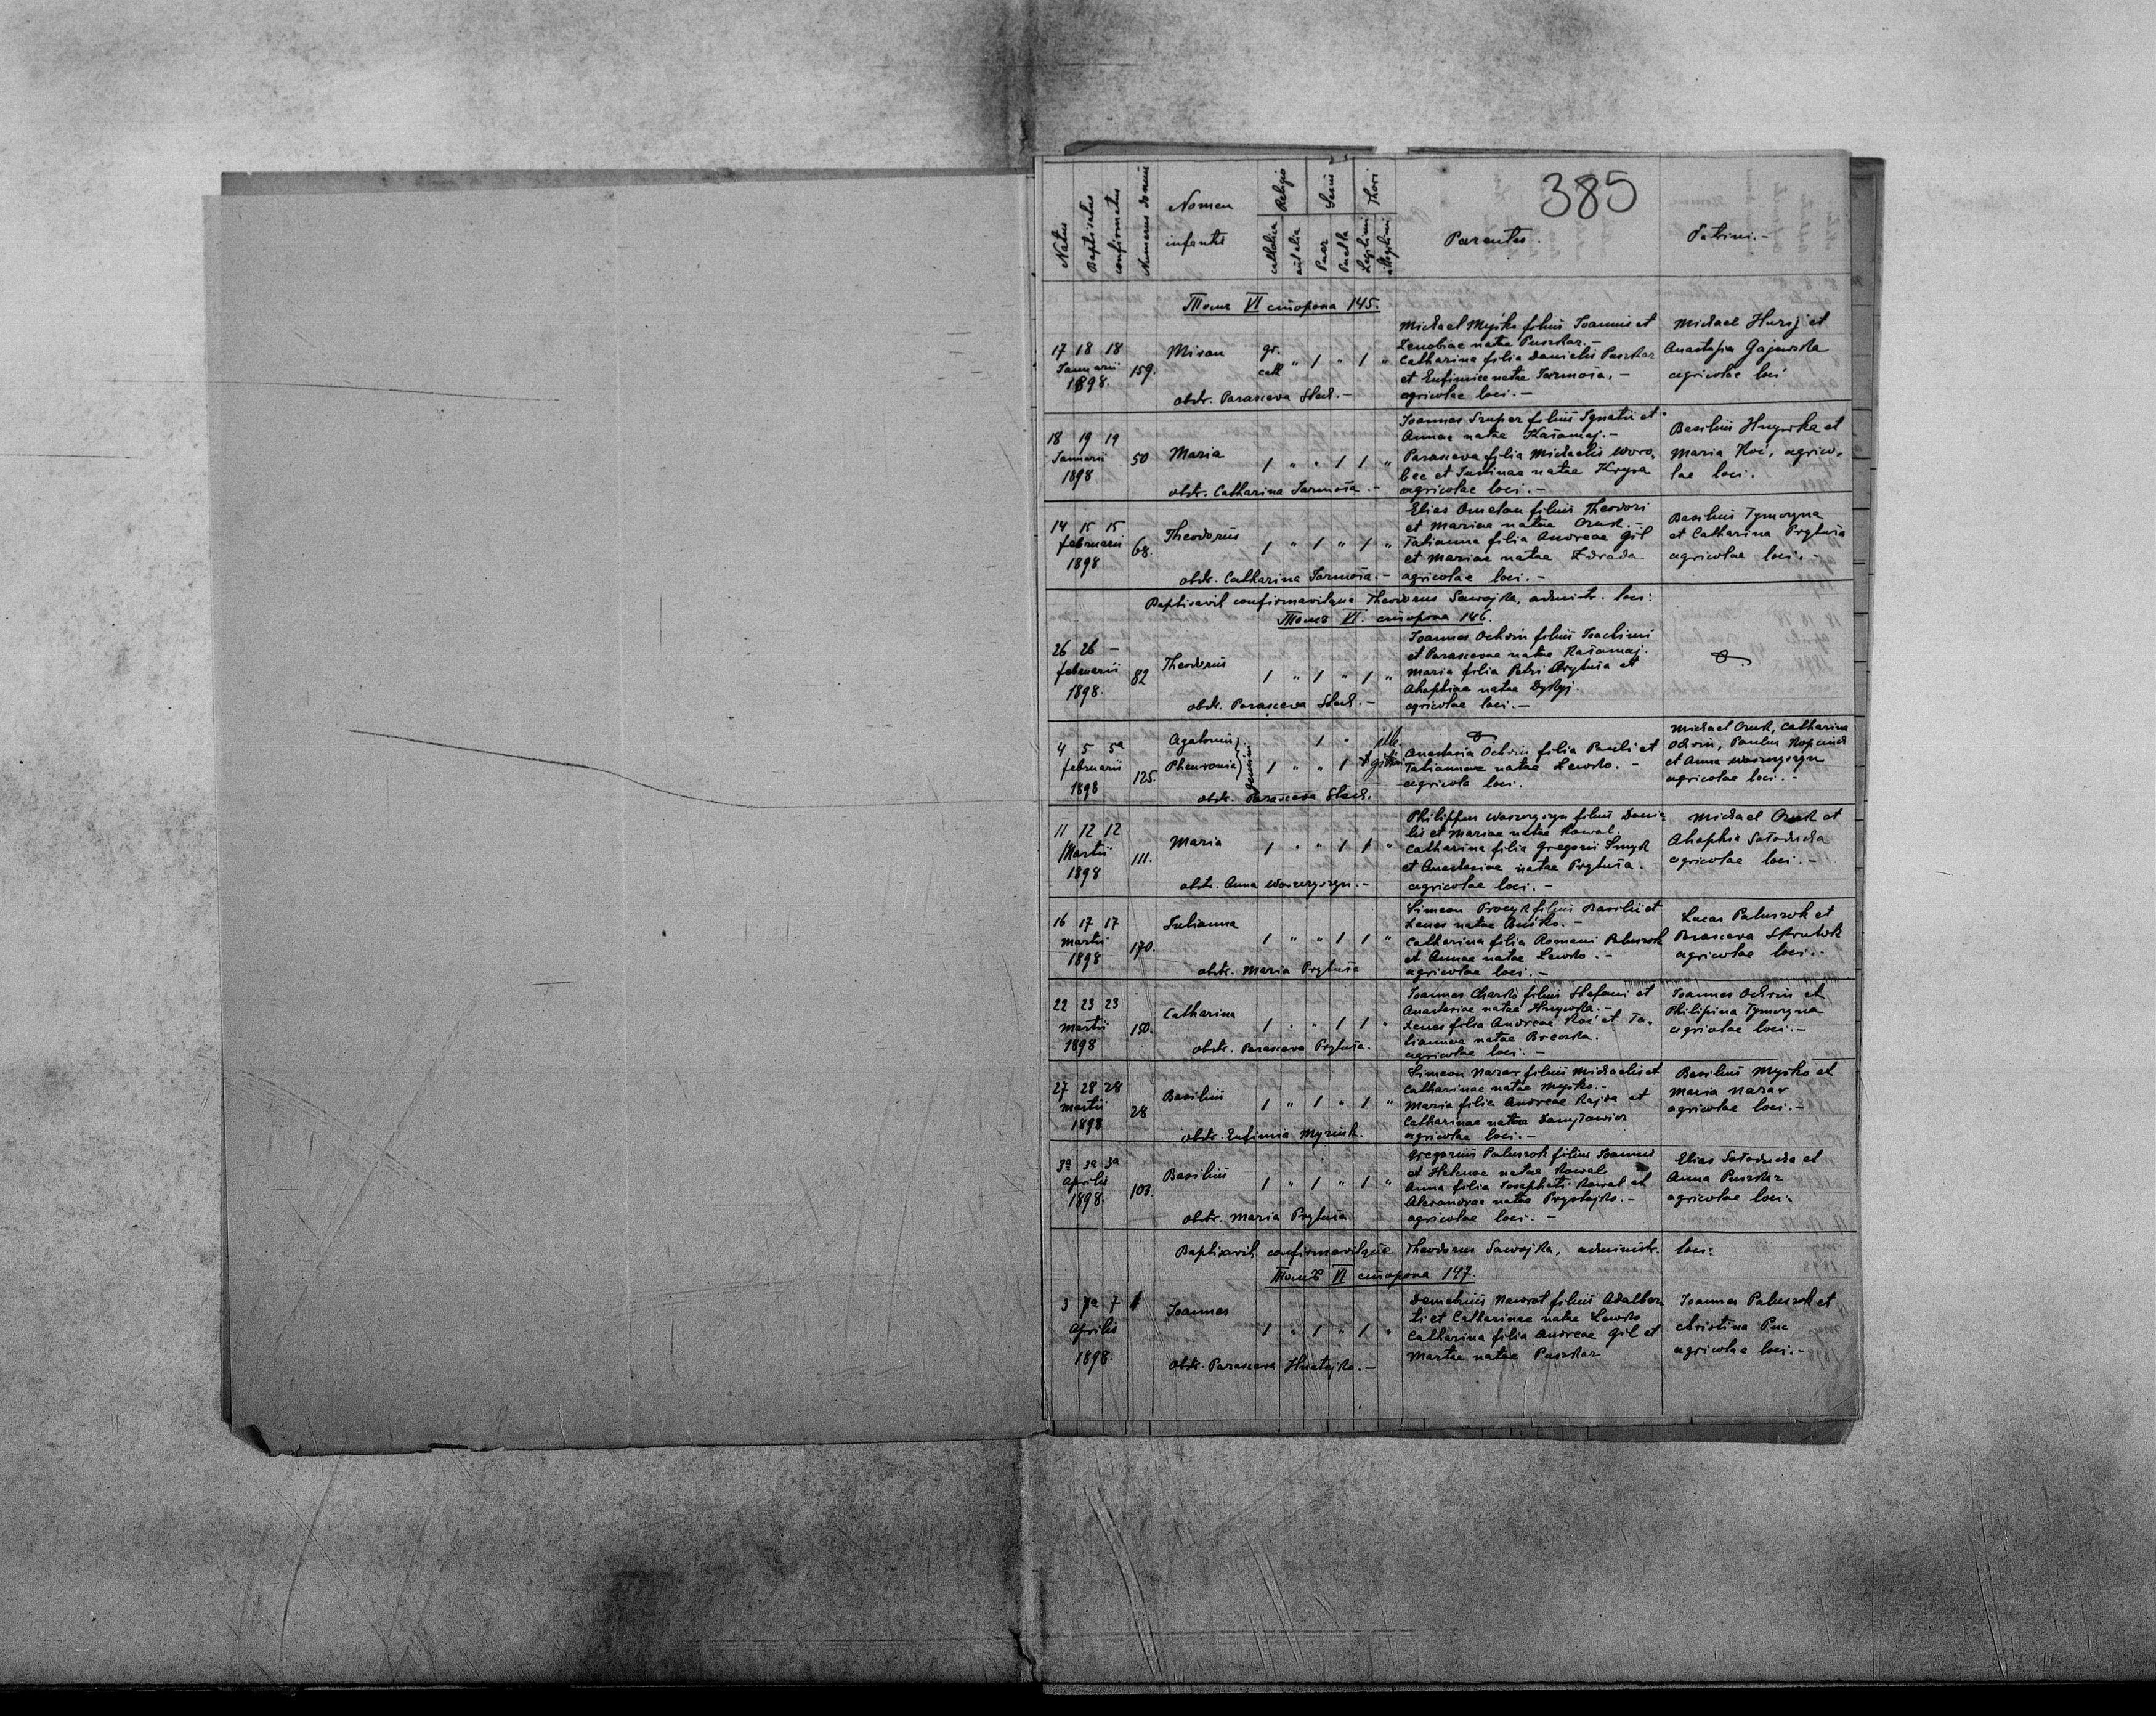 385
Natus Baptisatus confirmatus Numerus domus Nomen infantis Religio catholica aut alia Sexus Puer Puella Thori Legitimi Illegitimi Parentes. Patrini.-
Томъ VI сторона 145.
17 18 18 Januarii 1898. 159. Miron gr. cath " 1 " 1 "
obstr. Parasceva Stech.-
Michael Myśko filius Joannis et
Zenobiae natae Puszkar.-
Catharina filia Danielis Puszkar
et Eufimiae natae Jarmoła.-
agricolae loci.-
Michael Huzij et
Anastasia Gajewska
agricolae loci
18 19 19 Januarii 1898 50 Maria 1 " " 1 1 "
obstr. Catharina Jarmoła.-
Joannes Szuper filius Ignatii et
Annae natae Kałamaj.-
Parasceva filia Michaelis Woro,
bec et Justinae natae Kryva
agricolae loci.-
Basilius Hnywka et
Maria Koć, agrico,
lae loci.
14 15 15 februarii 1898 68. Theodorus 1 " 1 " 1 "
obstr. Catharina Jarmoła.-
Elias Ometan filius Theodori
et Mariae natae Oruch.-
Tatianna filia Andreae Gil
et Mariae natae Zdrada
agricolae loci.-
Basilius Tymoczna
et Catharina Prytuła
agricolae loci.-
Baptisavit confirmavitque Theodorus Sawojka, administr. loci:
Томъ VI. сторона 146.
26 26 - februarii 1898. 82 Theodorus 1 " 1 " 1 "
obstr. Parasceva Stech.-
Joannes Ochrin filius Joachimi
et Parascevae natae Kałamaj.
Maria filia Petri Prytuła et
Ahaphiae natae Dykyj.
agricolae loci.-
4 5 5ª februarii 1898 125. Agatonius 1 " ille
Pheuronia gemini 1 " " 1 gitimi
obstr. Parasceva Stech.
Anastasia Ochrin filia Pauli et
Tatiannae natae Lewko.-
agricola loci.
Michael Oruch, Catharina
Ochrin, Paulus Kopciuch
et Anna Waszczyszyn
agricolae loci.-
11 12 12 Martii 1898 111. Maria 1 " " 1 1 "
obstr. Anna Waszczyszyn.-
Philippus Waszczyszyn filius Danie,
lis et Mariae natae Kowal.
Catharina filia Gregorii Smyk
et Anastasiae natae Prytuła.
agricolae loci.-
Michael Oruch et
Ahaphia Sołoducha
agricolae loci.-
16 17 17 Martii 1898 170. Julianna 1 " " 1 1 "
obstr. Maria Prytuła
Simeon Procyk filius Basilii et
Zenes natae
Catharina filia Romani Paluszok
et Annae natae Lewko.-
agricolae loci.-
Lucas Paluszok et
Parasceva Skrutok
agricolae loci.-
22 23 23 Martii 1898 150. Catharina 1 " " 1 1 "
obstr. Parasceva Prytuła.
Joannes Charko filius Stefani et
Anastasiae natae Hnywka.-
Zenes filia Andreae Koć et Ta,
tiannae natae Brezska.
agricolae loci.-
Joannes Ochrin et
Philipina Tymoczna
agricolae loci.-
27 28 28 Martii 1898 28 Basilius 1 " 1 " 1 "
obstr. Eufimia
Simeon Nazar filius Michaelis et
Catharinae natae Myśko.-
Maria filia Andreae Rajda et
Catharinae natae Danyłowicz
agricolae loci.-
Basilius Myśko et
Maria Nazar
agricolae loci.-
3ª 3ª 3ª Aprilis 1898. 103. Basilius 1 " 1 " 1 "
obstr. Maria Prytuła
Gregorius Paluszok filius Joannis
et Helenae natae Kowal
Anna filia Josephati Kowal et
Alexandrae natae Prystajko.-
agricolae loci.-
Elias Sołoducha et
Anna Puszkar
agricolae loci.-
Baptisavit confirmavitque Theodorus Sawojka, administr. loci:
Томъ VI сторона 147.
3 7ª 7 Aprilis 1898. 1 Joannes 1 " 1 " 1 "
obstr. Parasceva Hnatejko.-
Demetrius Nawrot filius Adalber
ti et Catharinae natae Lewko
Catharina filia Andreae Gil et
Martae natae Puszkar
Joannes Paluszok et
Christina Puc
agricolae loci.-